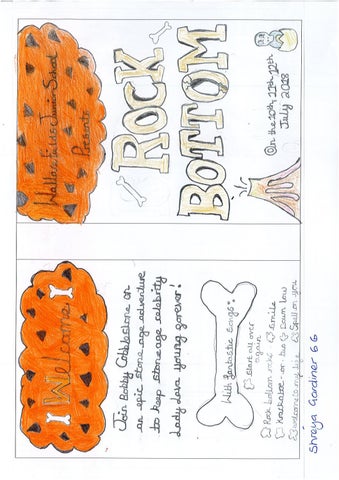 Wallace Fields Junior School
Presents
ROCK
BOTTOM
On the 10th, 11th, 12th
July 2018
Welcome
Join Bobby Cobblestone on
an epic stone age adventure
to keep stone age celebrity
Lady Lava young gorever!
With fantastic songs:
Start all over
again
Rock bottom rocks Smile
or two Down low
Welcome to my Spell on you
Shreya Gardiner 6G